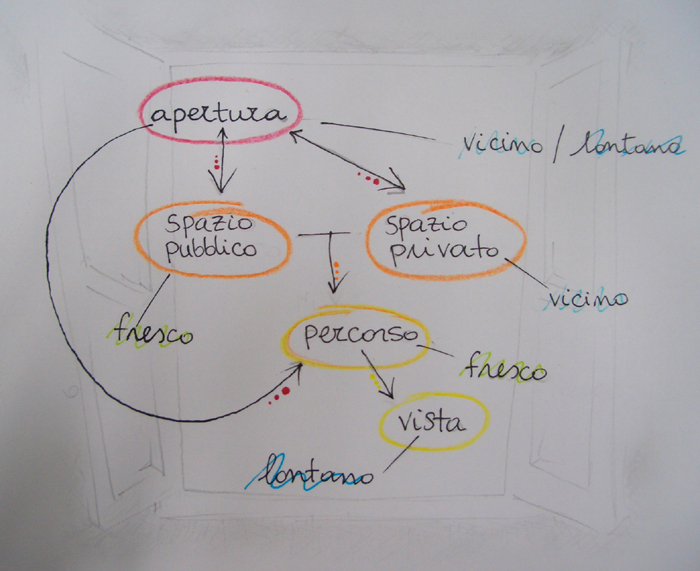 apertura
vicino / lontano
spazio
pubblico
spazio
privato
vicino
fresco
percorso
fresco
vista
lontano